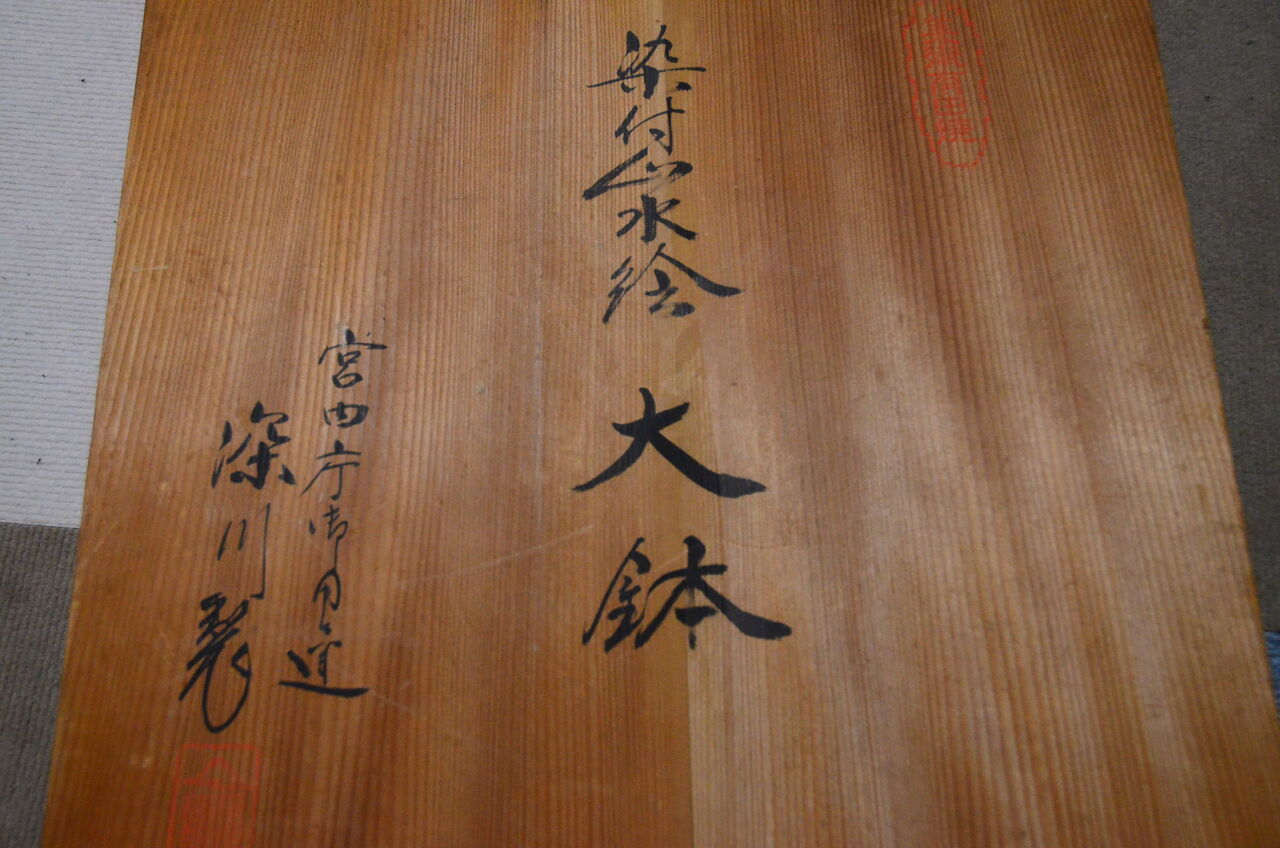 染付山水絵 大鉢
宮内庁御用達
深川製
有田焼